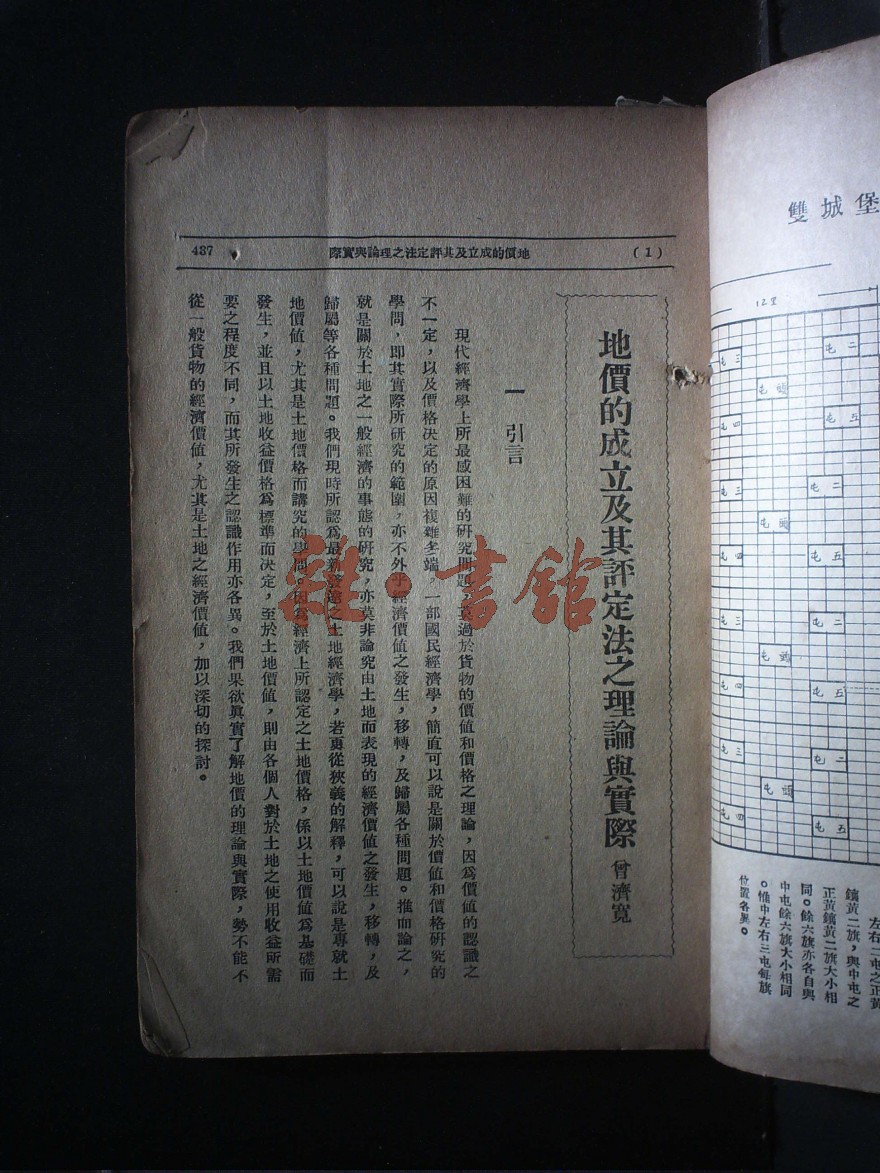 雙城堡
12里
左右二屯之正黃
鑲黃二旗，與中屯之
正黃鑲黃二旗大小相
同。餘六旗亦各自與
中屯餘六旗大小相同
。惟中左右三屯每旗
位置各異。
(1)
地價的成立及其評定法之理論與實際
437
地價的成立及其評定法之理論與實際 曾濟寬
一 引言
現代經濟學上所最感困難的研究問題，莫過於貨物的價值和價格之理論，因爲價值的認識之
不一定，以及價格決定的原因複雜多端。一部國民經濟學，簡直可以說是關於價值和價格研究的
學問，即其實際所研究的範圍，亦不外乎經濟價值之發生，移轉，及歸屬各種問題。推而論之，
就是關於土地之一般經濟的事態的研究，亦莫非論究由土地而表現的經濟價值之發生，移轉，及
歸屬等各種問題。我們現時所認爲最新發達之土地經濟學，若更從狹義的解釋，可以說是專就土
地價值，尤其是土地價格而講究的學問。因爲經濟上所認定之土地價格，係以土地價值爲基礎而
發生，並且以土地收益價格爲標準而決定，至於土地價值，則由各個人對於土地之使用收益所需
要之程度不同，而其所發生之認識作用亦各異。我們果欲眞實了解地價的理論與實際，勢不能不
從一般貨物的經濟價值，尤其是土地之經濟價值，加以深切的探討。
雜·書館